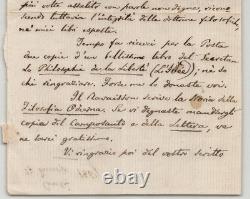 più volte assalito con parole non degne, viene
sendo tuttavia l'integrità della dottrina filosofica,
ne' miei libri esposta.
Tempo fa ricevei per la Posta
due copie d'un bellissimo libro del Secretan
La Philosophie de la liberté (           ), nè so
chi ringraziare. Forse me lo donaste voi.
Il Ravaisson scrive la Storia della
Filosofia Odierna: Se vi degnaste mandargli
copia del Camposanto e della Lettera, ve
ne sarei gratissimo.
Vi ringrazio poi del vostro scritto
ebay